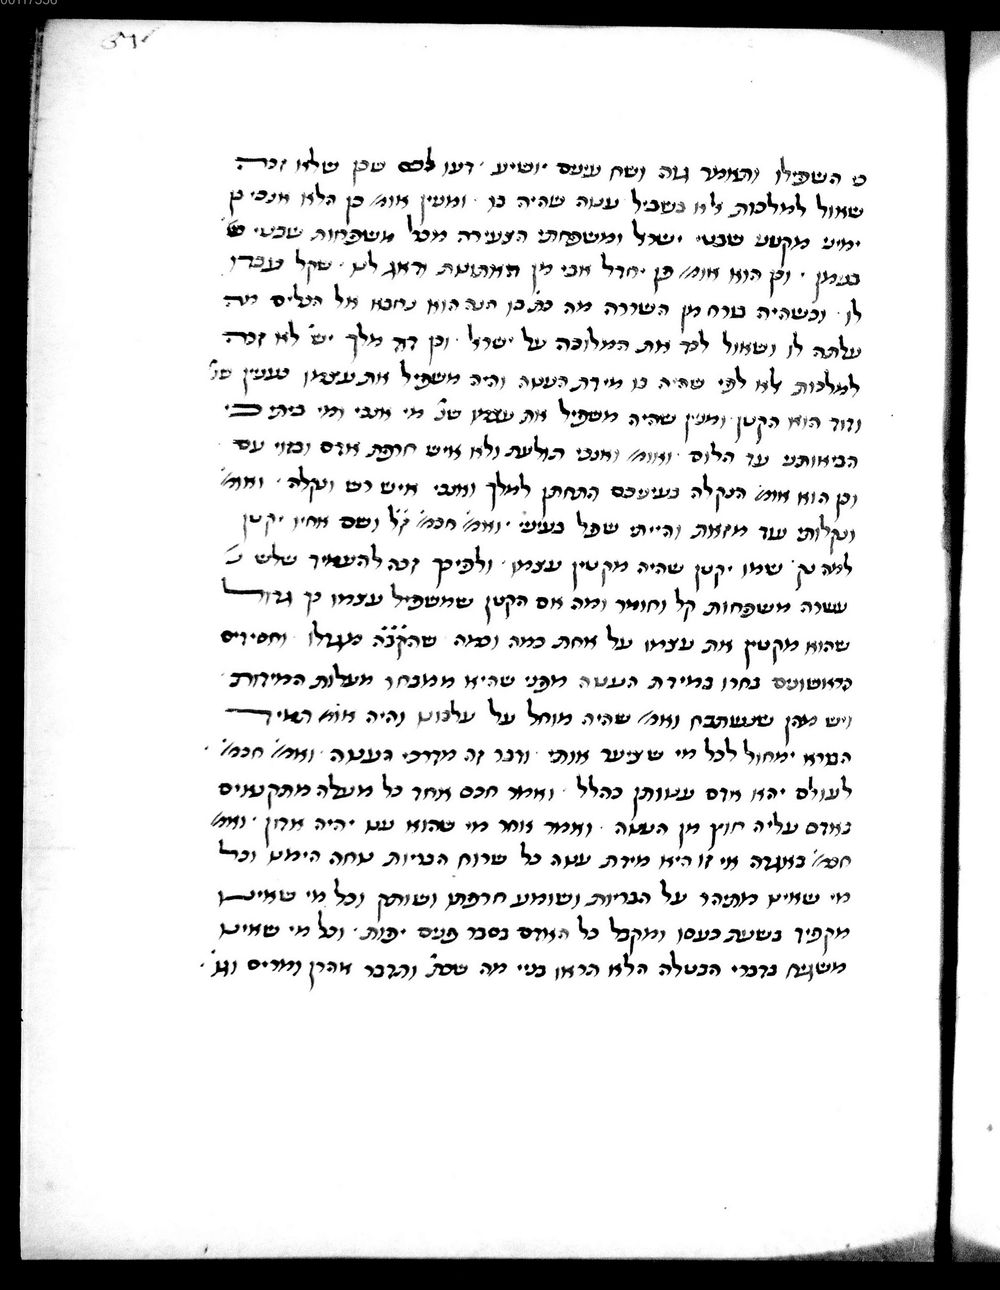 כי השפילו ותאמר גוה ושח עינים יושיע ׳ דעו לכם שכן שלא זכה
שאול למלכות אלא בשביל ענוה שהיה בו ׳ ומנין אומ׳ כן הלא אנכי בן
ימיני מקטני שבטי ישראל ומשפחתי הצעירה מכל משפחות שבטי
בנימן ׳ וכן הוא אומ׳ פן יחדל אבי מן האתונות ודאג לנו ׳ שקל עבדו
לו ׳ וכשהיה בורח מן השררה מה כת׳ בו הנה הוא נחבא אל הכלים מה
עלתה לו ושאול לכד את המלוכה על ישראל ׳ וכן דוד מלך יש׳ לא זכה
למלכות אלא לפי שהיה בו מידת הענוה והיה משפיל את עצמו כענין שנ׳
ודוד הוא הקטן ומנין שהיה משפיל את עצמו שנ׳ מי אנכי ומי ביתי כי
הביאותני עד הלום ׳ ואומ׳ ואנכי תולעת ולא איש חרפת אדם ובזוי עם ׳
וכן הוא אומ׳ הנקלה בעיניכם התחתן למלך ואנכי איש רש ונקלה ׳ ואומ׳
ונקלותי עוד מזאת והייתי שפל בעיני ׳ ואמ׳ חכמ׳ ז״ל ושם אחיו יקטן
למה נק׳ שמו יקטן שהיה מקטין עצמו ׳ ולפיכך זכה להעמיד שלש
עשרה משפחות קל וחומר ומה אם הקטן שמשפיל עצמו כך גדול
שהוא מקטין את עצמו על אחת כמה וכמה שהקב״ה מגדלו ׳ וחסידים
הראשונים בחרו במידת הענוה מפני שהיא ממבחר מעלות המידות ׳
ויש מהן שנשתבח ואמ׳ שהיה מוחל על עלבונו והיה אומ׳
הבורא ימחול לכל מי שציער אותי ׳ ודבר זה מדרכי הענוה ׳ ואמ׳ חכמ׳
לעולם יהא אדם ענוותן כהלל ׳ ואמר חכם אחד כל מעלה מתקנאים
באדם עליה חוץ מן הענוה ׳ ואמר אוחר מי שהוא עניו יהיה אדון ׳ ואמ׳
חכמ׳ באגדה אי זו היא מידת ענוה כל שרוח הבריות נוחה הימנו וכל
מי שאינו מתיהר על הבריות ושומע חרפתו ושותק וכל מי שאינו
מקפיד בשעת כעסו ומקבל כל האדם בסבר פנים יפות ׳ וכל מי שאינו
משגיח בדברי הבטלה הלא תראו בניי מה שכת׳ ותדבר אהרן ומרים וגו׳